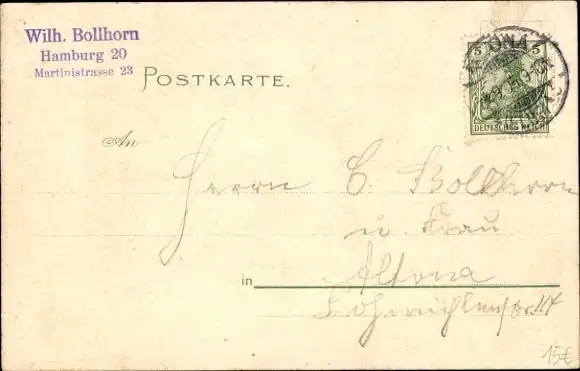 Wilh. Bollhorn
Hamburg 20
Martinistrasse 23
POSTKARTE.
5 5
DEUTSCHES REICH
An
Herrn C. Bollhorn
u. Frau
in Altona
117
15€